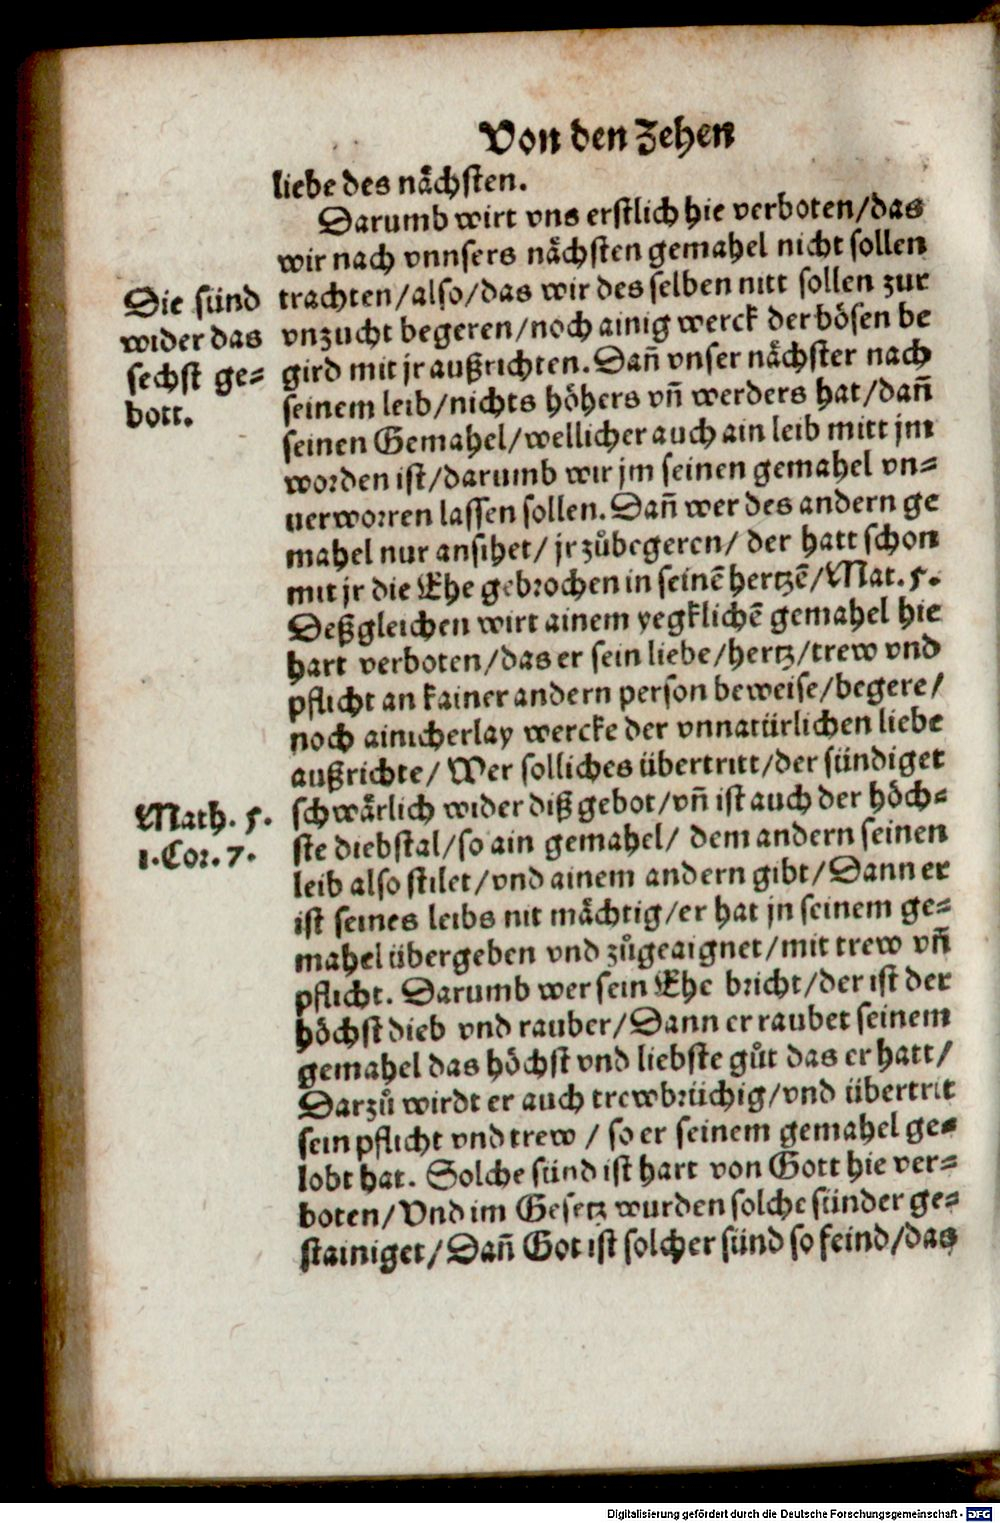 Von den Zehen
liebe des nächsten.
Darumb wirt vns erstlich hie verboten/das
wir nach vnnsers nächsten gemahel nicht sollen
Die sünd
wider das
sechst ge=
bott.
trachten/also/das wir des selben nitt sollen zur
vnzucht begeren/noch ainig werck der bösen be
gird mit jr außrichten. Dañ vnser nächster nach
seinem leib/nichts höhers vñ werders hat/dañ
seinen Gemahel/wellicher auch ain leib mitt jm
worden ist/darumb wir jm seinen gemahel vn=
uerworren lassen sollen. Dañ wer des andern ge
mahel nur ansihet/ jr zůbegeren/ der hatt schon
mit jr die Ehe gebrochen in seinē hertzē/Mat. 5.
Deßgleichen wirt ainem yegklichē gemahel hie
hart verboten/das er sein liebe/hertz/trew vnd
pflicht an kainer andern person beweise/begere/
noch ainicherlay wercke der vnnatürlichen liebe
außrichte/ Wer solliches übertritt/der sündiget
Math. 5.
1.Cor. 7.
schwärlich wider diß gebot/vñ ist auch der höch=
ste diebstal/so ain gemahel/ dem andern seinen
leib also stilet/vnd ainem andern gibt/Dann er
ist seines leibs nit mächtig/er hat jn seinem ge=
mahel übergeben vnd zůgeaignet/mit trew vñ
pflicht. Darumb wer sein Ehe bricht/der ist der
höchst dieb vnd rauber/Dann er raubet seinem
gemahel das höchst vnd liebste gůt das er hatt/
Darzů wirdt er auch trewbrüchig/vnd übertrit
sein pflicht vnd trew / so er seinem gemahel ge=
lobt hat. Solche sünd ist hart von Gott hie ver=
boten/Vnd im Gesetz wurden solche sünder ge=
stainiget/Dañ Got ist solcher sünd so feind/das
Digitalisierung gefördert durch die Deutsche Forschungsgemeinschaft - DFG